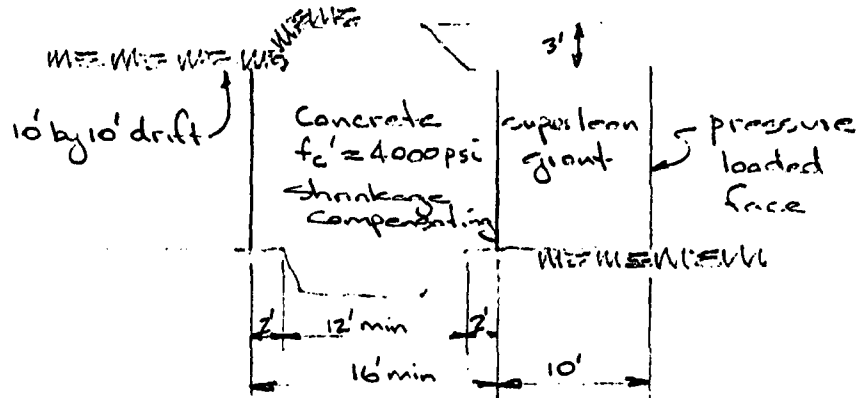 3'
10' by 10' drift
Concrete
fc' = 4000psi
shrinkage
compensating
superlean
grout
pressure
loaded
face
2'
12' min
2'
16' min
10'